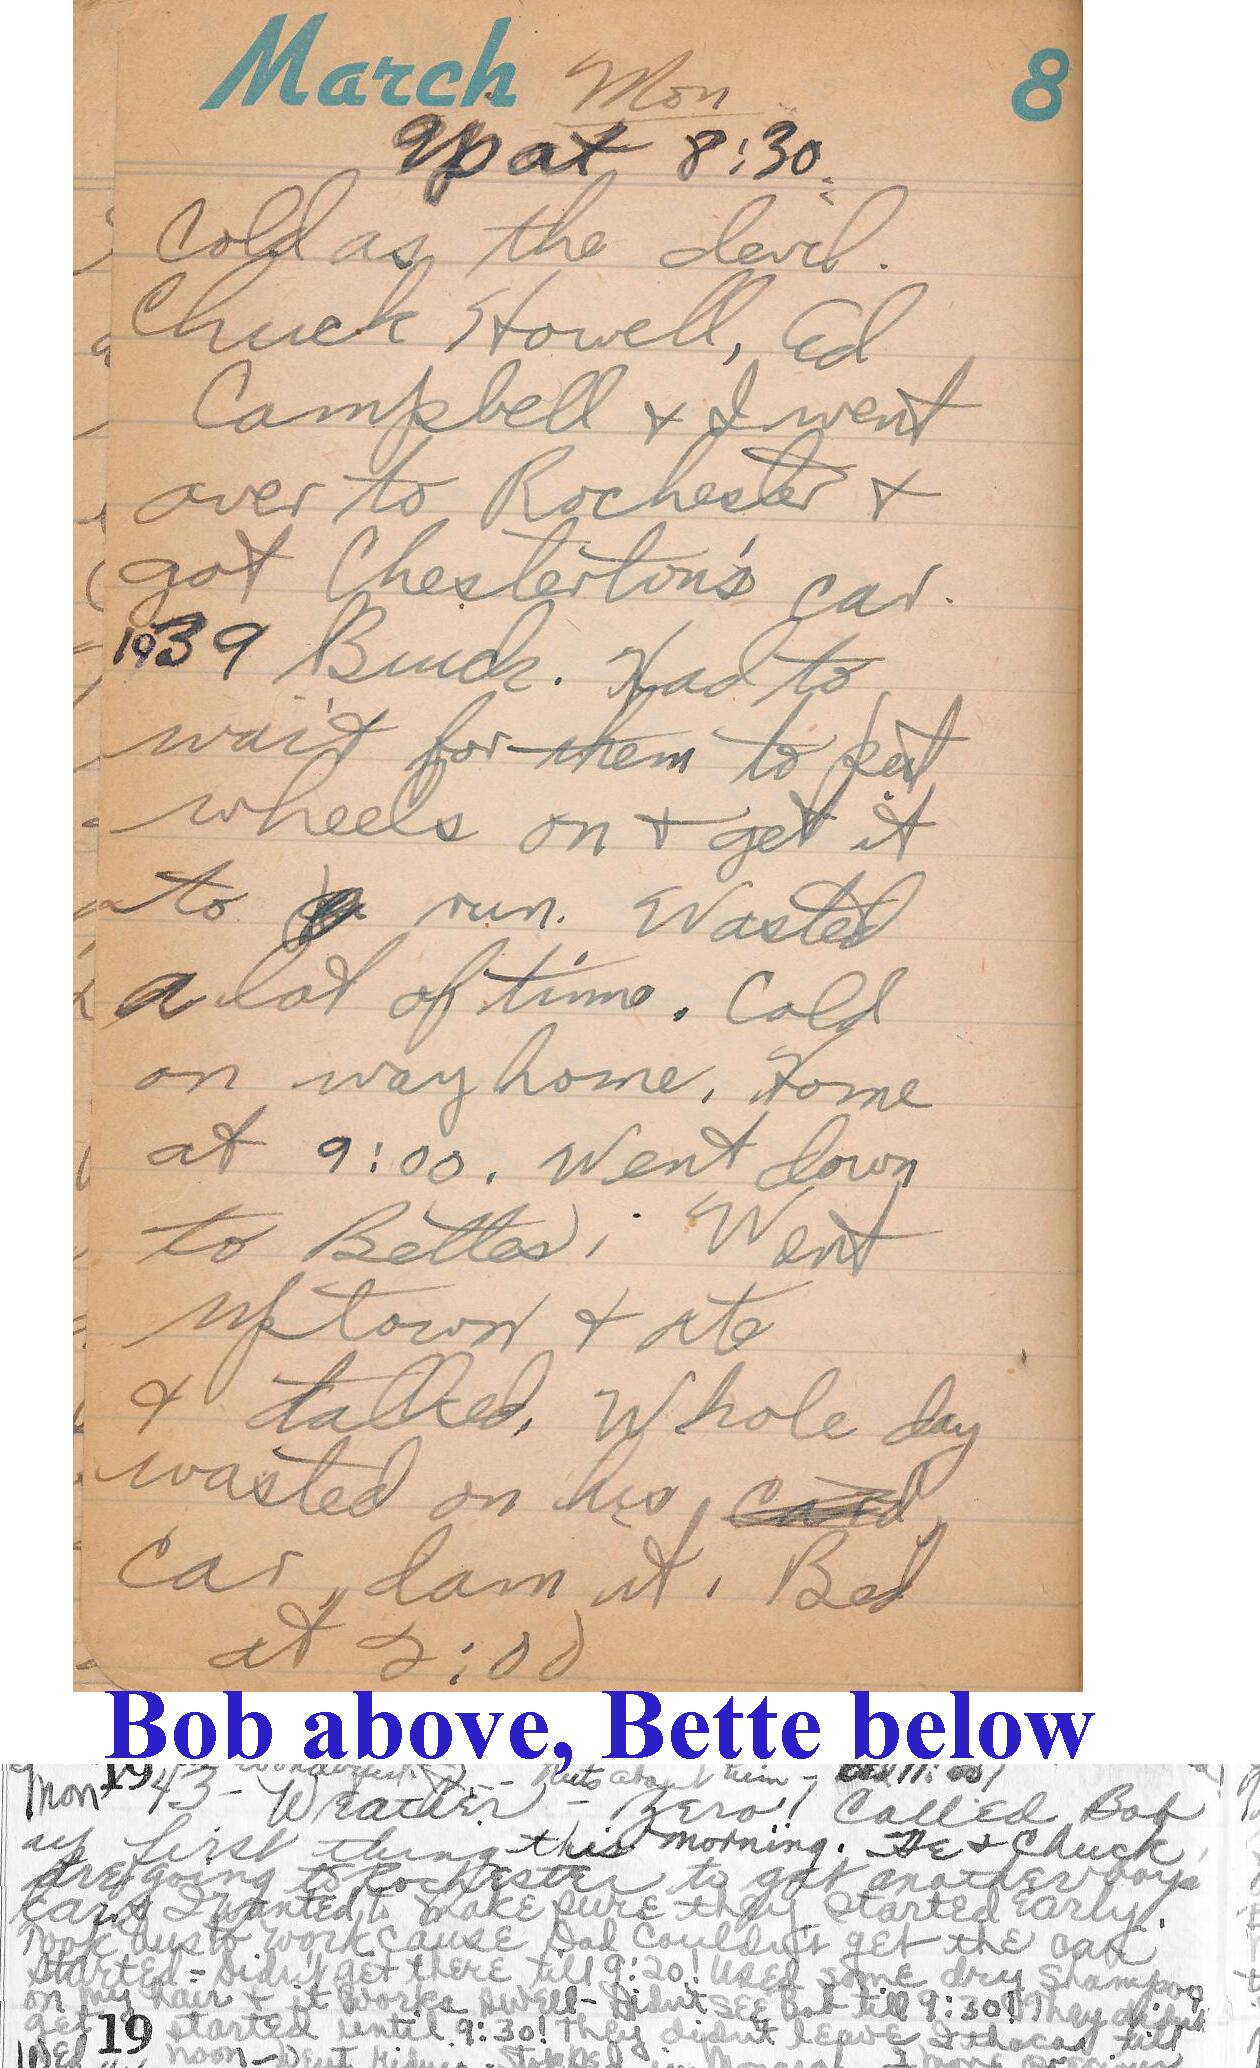 March Mon 8
Up at 8:30.
Cold as the devil.
Chuck Howell, Ed
Campbell & I went
over to Rochester &
got Chesterton's car.
1939 Buick. Had to
wait for them to put
wheels on & get it
to run. Wasted
a lot of time. Cold
on way home. Home
at 9:00. Went down
to Bettes; Went
uptown & ate
& talked. Whole day
wasted on his
car, dam it. Bed
at 2:00
Bob above, Bette below
Mon 1943 - Weather - Zero! Called Bob
first thing this morning. He & Chuck
are going to Rochester to get another boys
car & I wanted to make sure they started early.
Took bus to work cause Dad couldn't get the car
started - Didn't get there till 9:20! Used some dry shampoo
on my hair & it works swell - Didn't see Bob till 9:30! They didn't
get started until 9:30! They didn't leave Ithaca till
19
Wed noon -